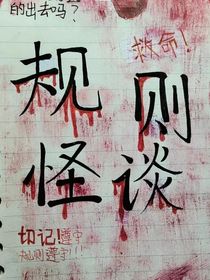 的出去吗？
救命！
规则
怪谈
切记！遵守
规则遵守！！！